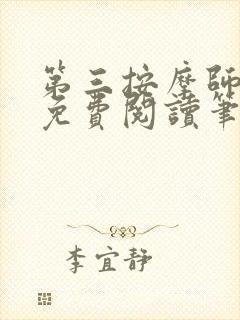 第三按摩師
免費閱讀筆
李宜靜